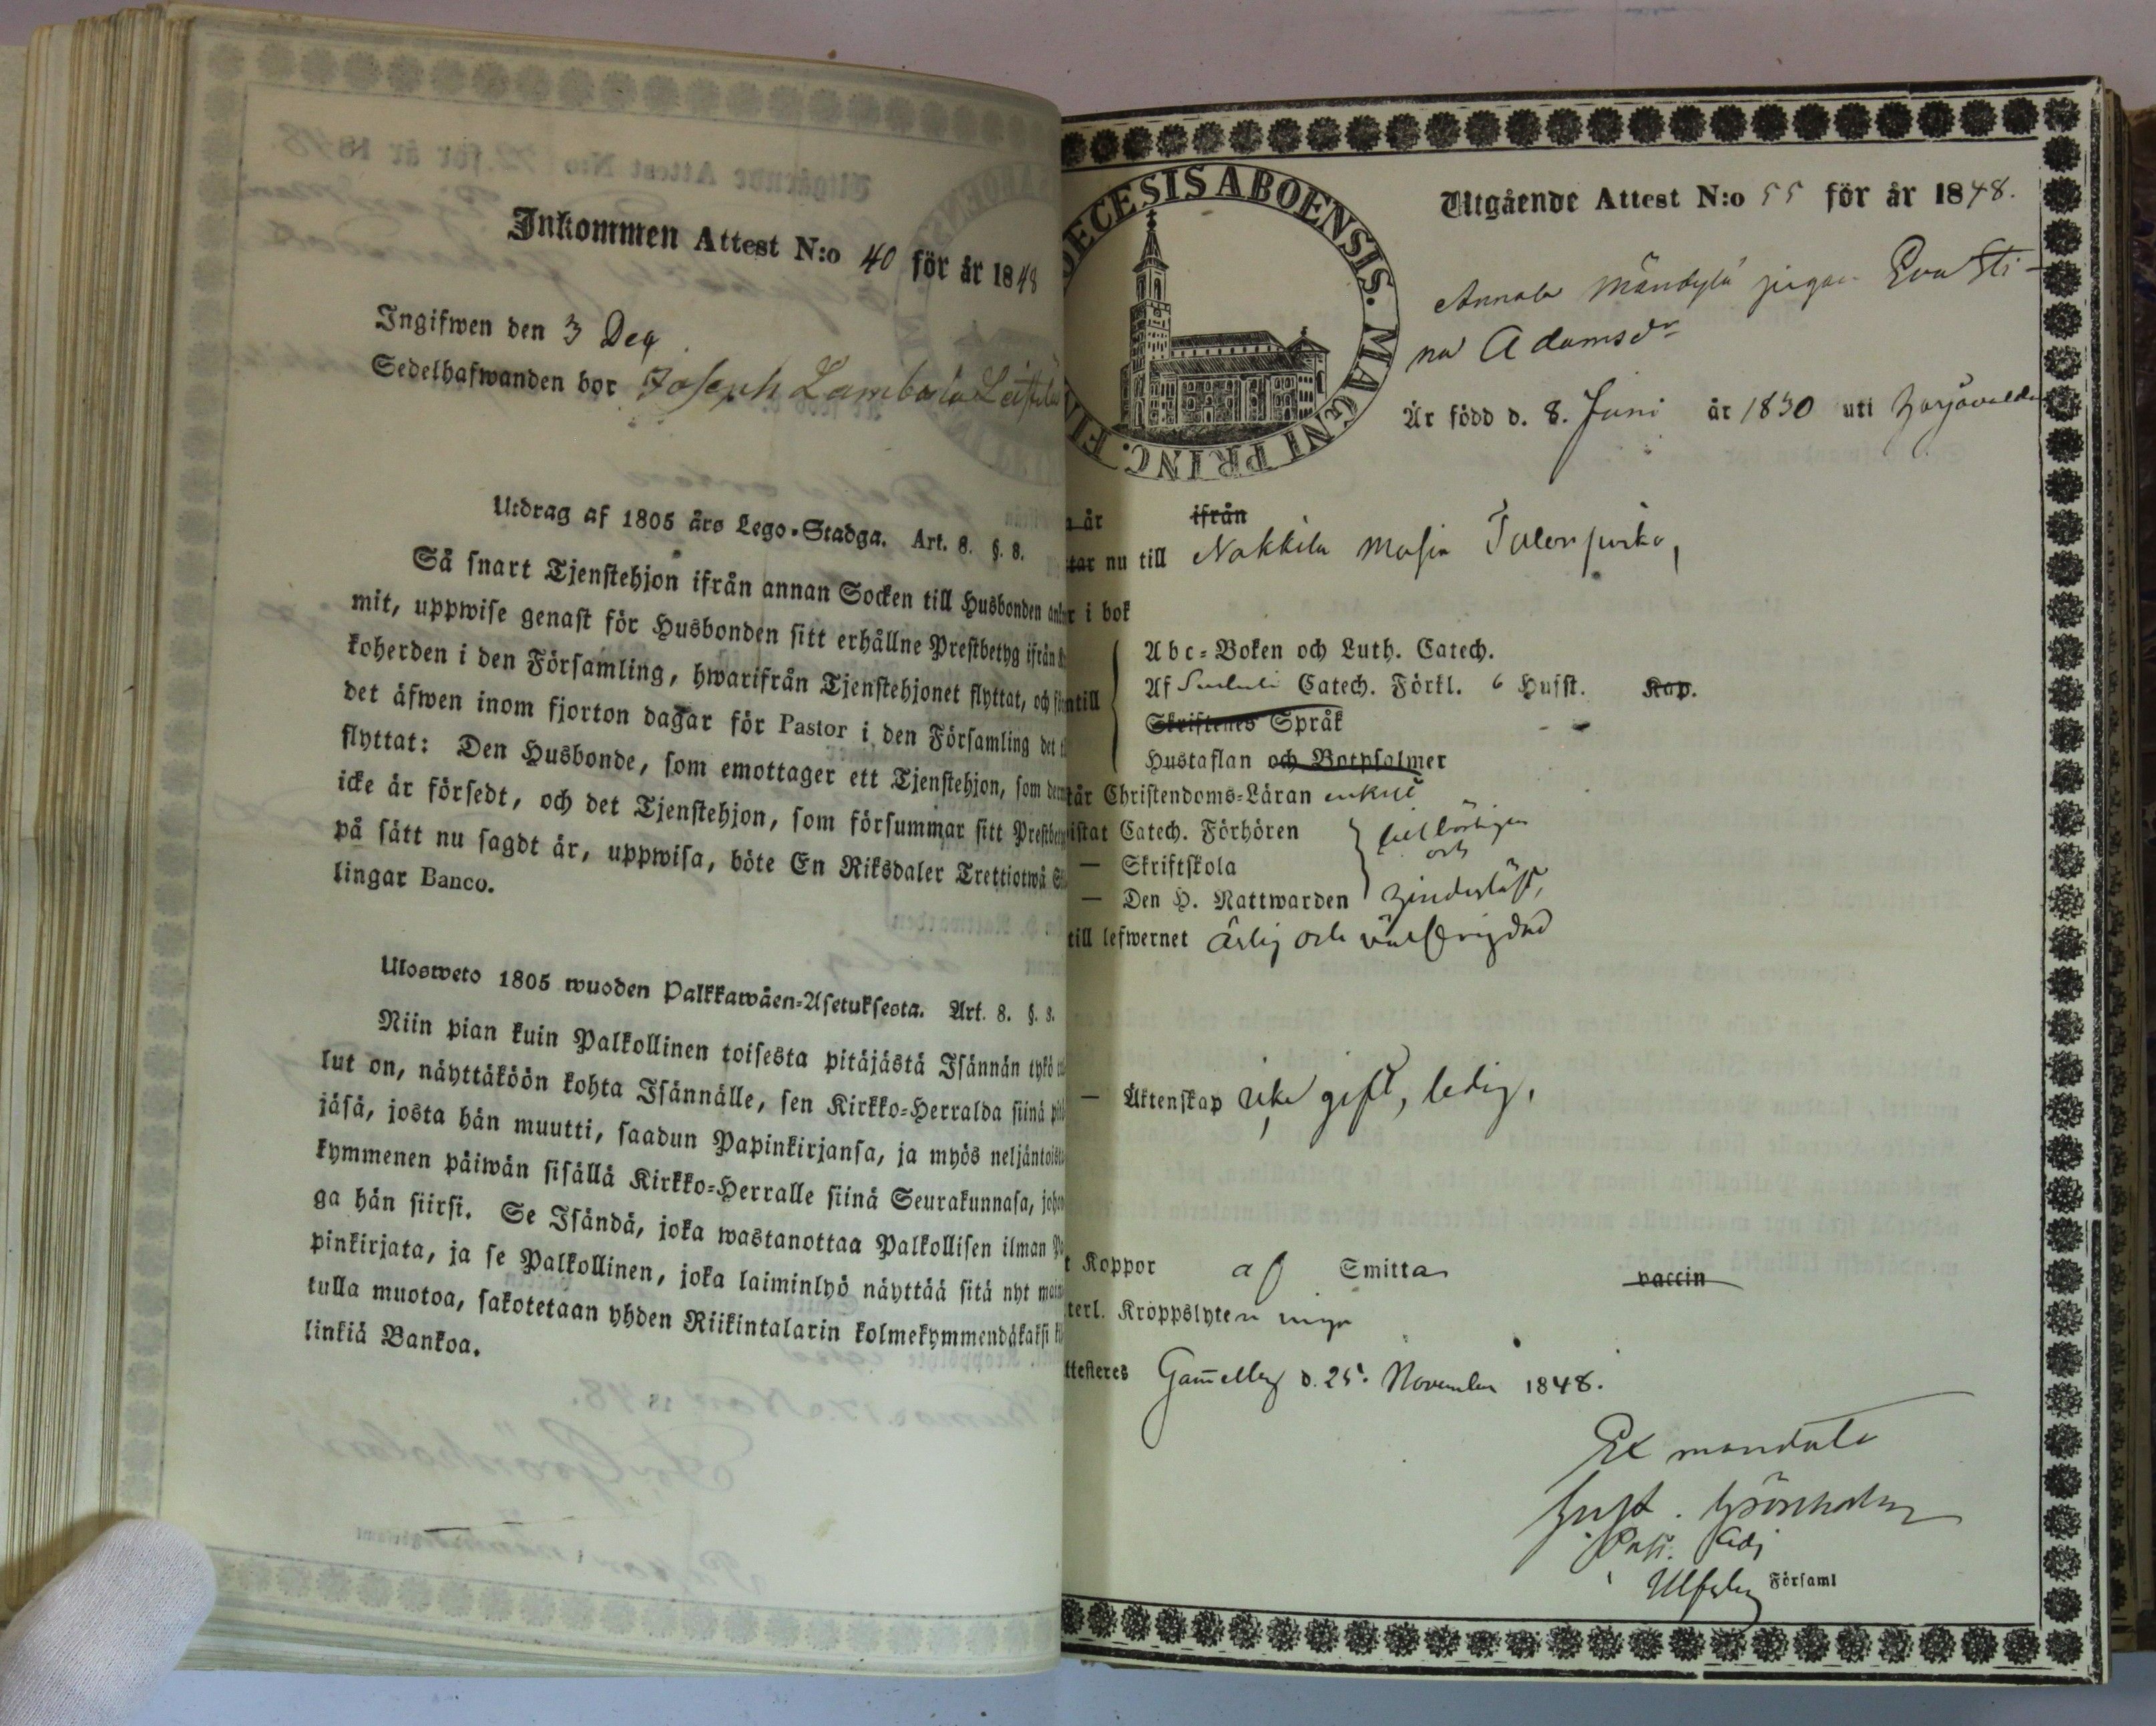 Inkommen Attest N:o 40 för år 1848
Ingifwen den 3 Dec
Sedelhafwanden bor Joseph Lambola
Utdrag af 1805 års Lego-Stadga. Art. 8. §. 8.
Så snart Tjenstehjon ifrån annan Socken till Husbonden
mit, uppwise genast för Husbonden sitt erhållne Prestbetyg ifrån
koherden i den Församling, hwarifrån Tjenstehjonet flyttat, och
det äfwen inom fjorton dagar för Pastor i den Församling det
flyttat: Den Husbonde, som emottager ett Tjenstehjon, som
icke är försedt, och det Tjenstehjon, som försummar sitt
på sätt nu sagdt är, uppwisa, böte En Riksdaler Trettiotwå
lingar Banco.
Ulosweto 1805 wuoden Palkkawäen-Asetuksesta. Art. 8. §. 8.
Niin pian kuin Palkollinen toisesta pitäjästä Isännän tykö
lut on, näyttäköön kohta Isännälle, sen Kirkko-Herralda siinä
jäsä, josta hän muutti, saadun Papinkirjansa, ja myös
kymmenen päiwän sisällä Kirkko-Herralle siinä Seurakunnasa,
ga hän siirsi. Se Isändä, joka wastanottaa Palkollisen ilman
pinkirjata, ja se Palkollinen, joka laiminlyö näyttää sitä nyt
tulla muotoa, sakotetaan yhden Riikintalarin kolmekymmendäkaksi
linkiä Bankoa.
DECESIS ABOENSIS. MAGNI PRINC. FI
Utgående Attest N:o 55 för år 1848.
Annala Mändylä pigan Eva Sti-
na Adamsdr
Är född d. 8. Juni år 1830 uti
är ifrån
tar nu till Nakkila
r i bok
Abc-Boken och Luth. Catech.
ntill Af Catech. Förkl. 6 Hufst. Kap.
Skriftenes Språk
Hustaflan och Botpsalmer
tår Christendoms-Läran enkelt
istat Catech. Förhören
och
— Skriftskola
— Den H. Nattwarden
till lefwernet ärlig och
— Äktenskap icke gift, ledig.
t Koppor af Smitta vaccin
terl. Kroppslyten inga
ttesteres Gam̄elby d. 25. November 1848.
Ex mandato
Gust. Grönholm
Past. Adj
Ulfsby Församl